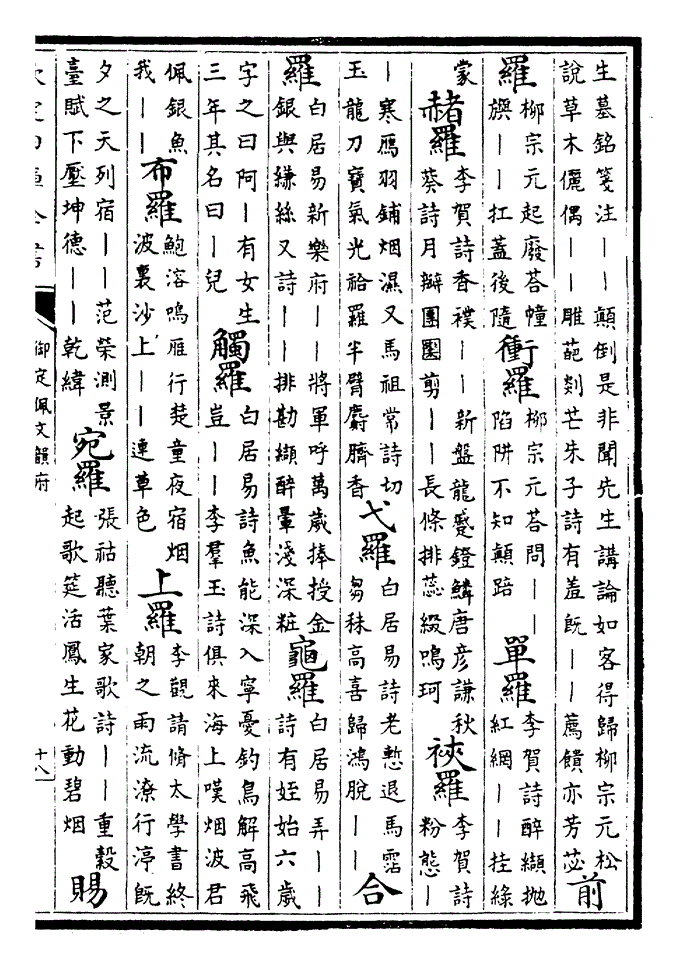 生墓銘箋注――顛倒是非聞先生講論如客得歸柳宗元松
說草木儷偶――雕葩剡芒朱子詩有羞既――薦饋亦芳苾
前
羅
柳宗元起廢荅幢
旟――扛蓋後隨
衝羅
柳宗元荅問――
陷阱不知顛踣
單羅
李賀詩醉纈抛
紅網――挂綠
蒙
赭羅
李賀詩香襆――新盤龍蹙鐙鱗唐彥謙秋
葵詩月瓣團圞剪――長條排蕊綴鳴珂
裌羅
李賀詩
粉態―
―寒鴈羽鋪烟濕又馬祖常詩切
玉龍刀寶氣光袷羅半臂麝臍香
弋羅
白居易詩老慙退馬霑
芻秣高喜歸鴻脫――
合
羅
白居易新樂府――將軍呼萬歲捧授金
銀與縑絲又詩――排勘纈醉暈淺深粧
龜羅
白居易弄――
詩有姪始六歲
字之曰阿―有女生
三年其名曰―兒
觸羅
白居易詩魚能深入寧憂釣鳥解高飛
豈――李羣玉詩俱來海上嘆烟波君
佩銀魚
我――
布羅
鮑溶鳴雁行楚童夜宿烟
波裏沙上――連草色
上羅
李觀請脩太學書終
朝之雨流潦行渟既
夕之天列宿――范榮測景
臺賦下壓坤德――乾緯
宛羅
張祜聽葉家歌詩――重縠
起歌筵活鳳生花動碧烟
賜
欽定四庫全書
御定佩文韻府
十八